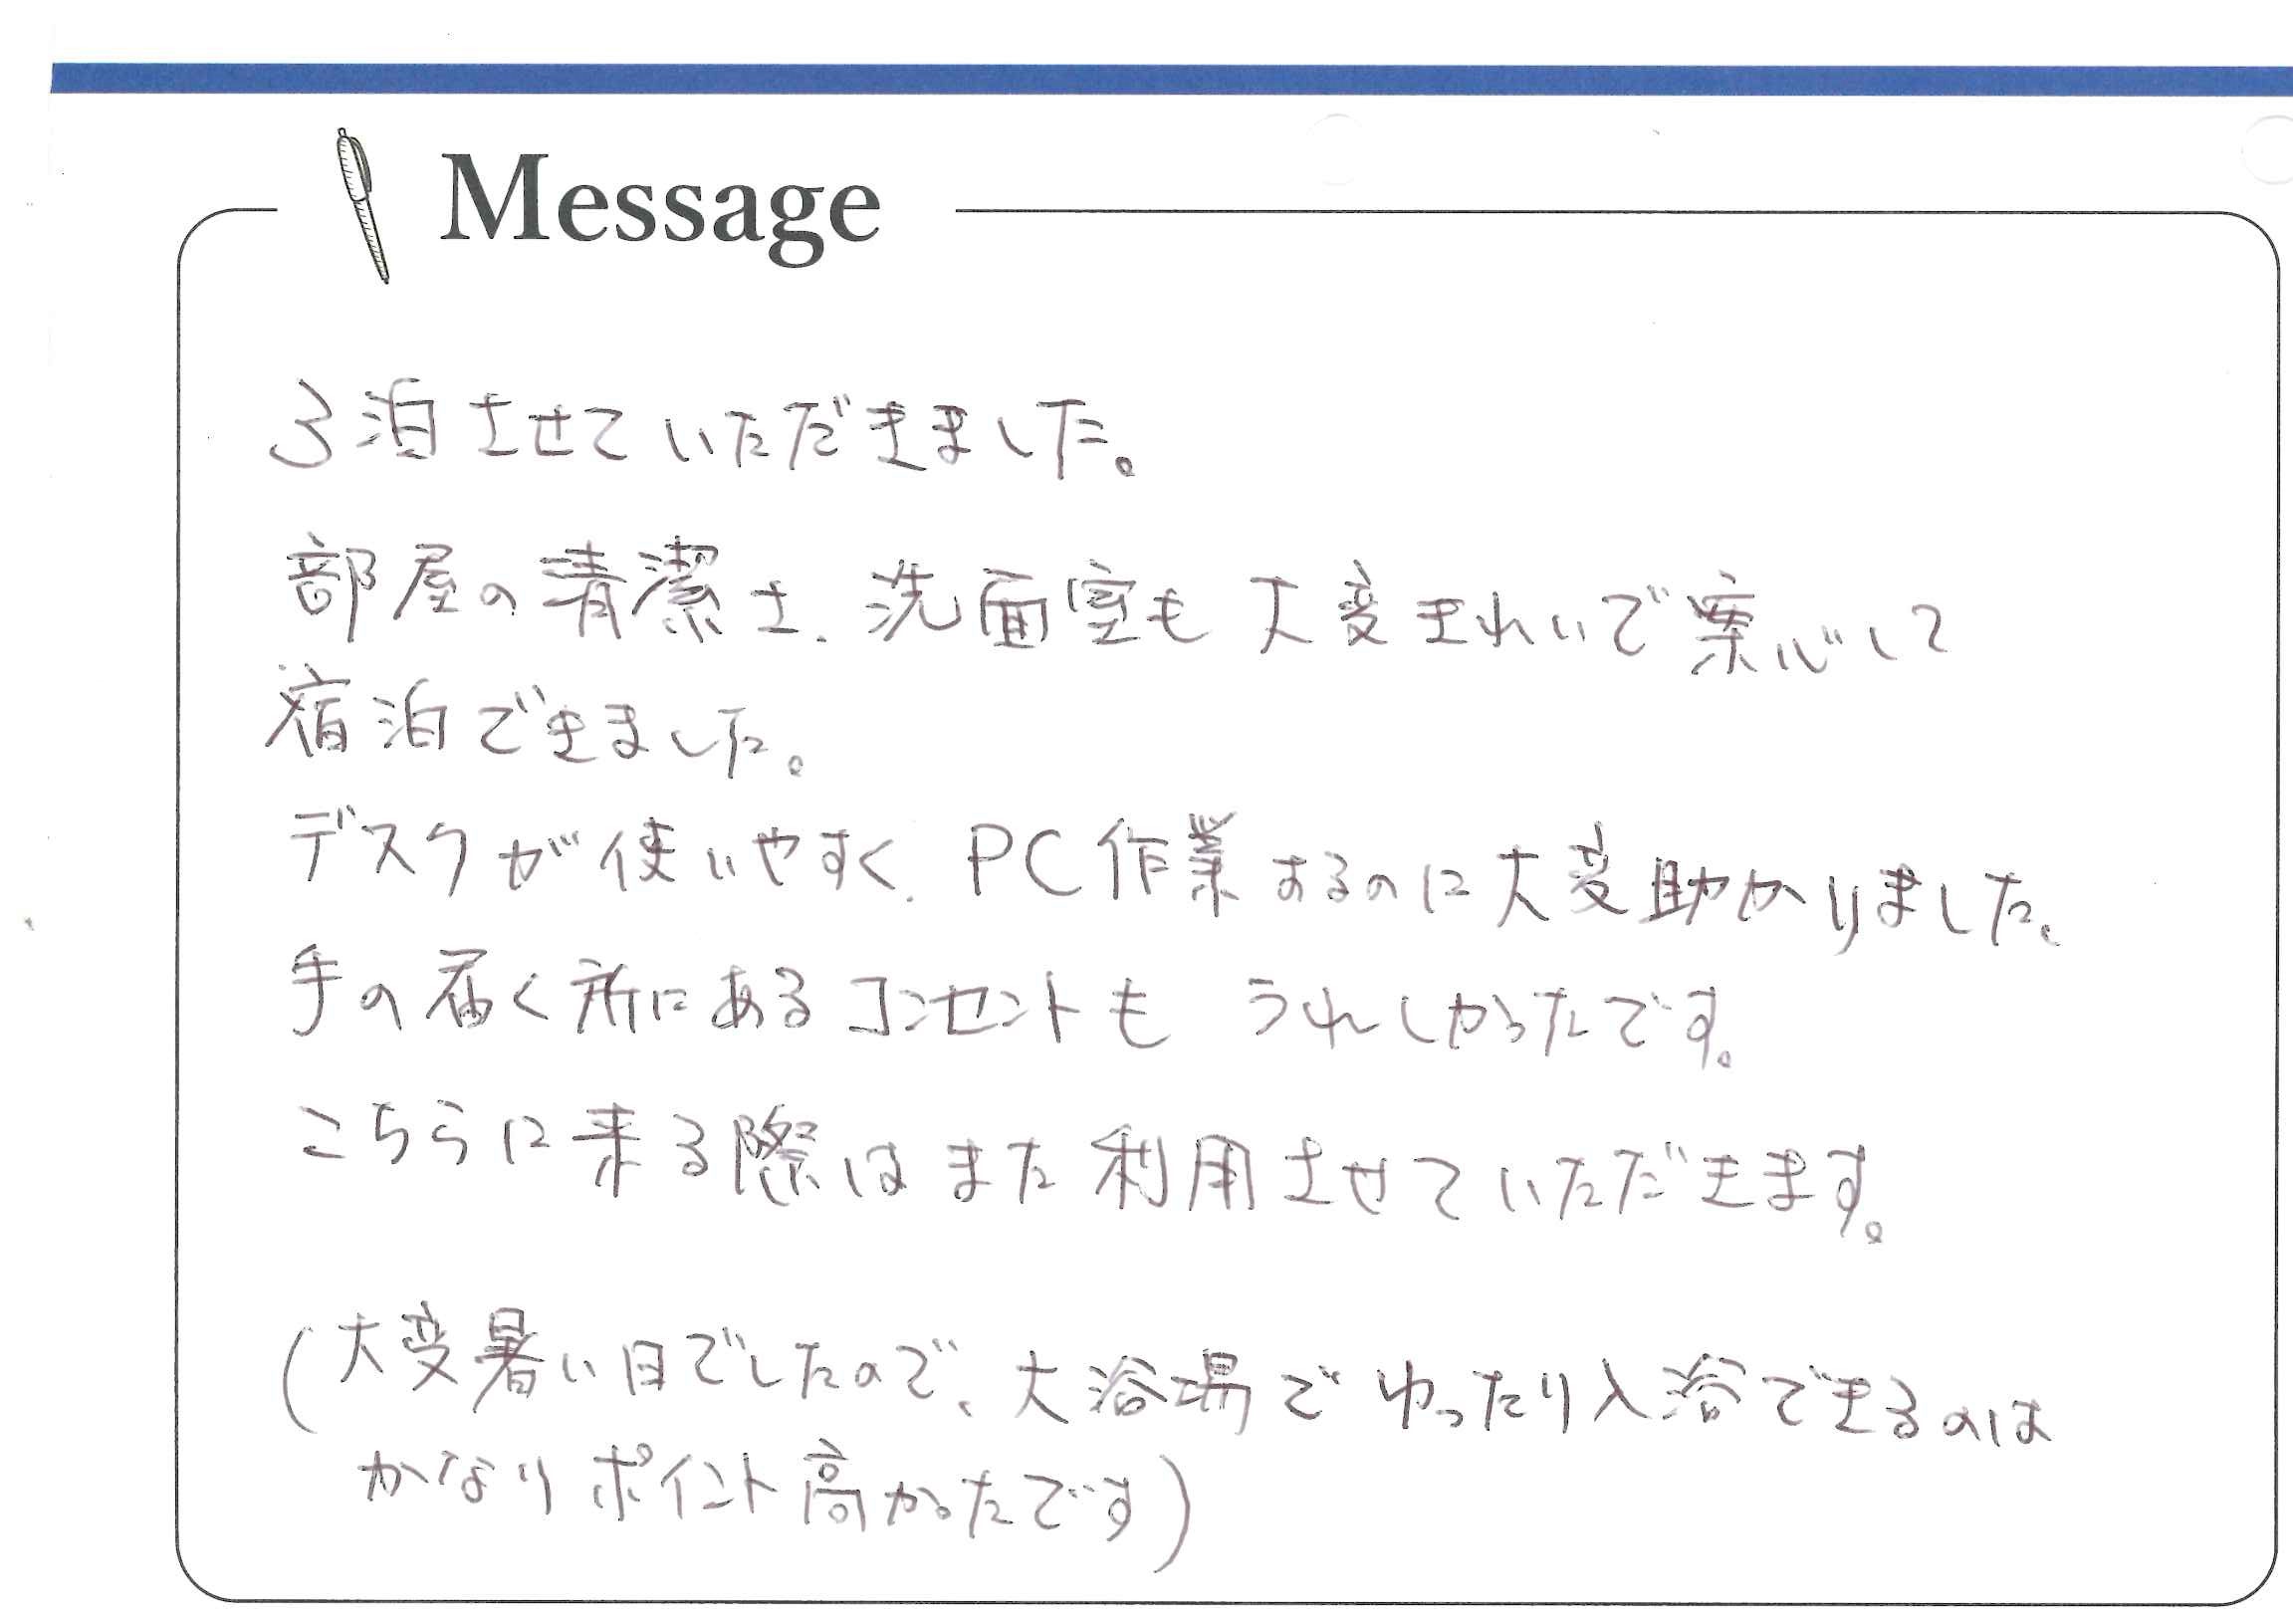 Message
3泊させていただきました。
部屋の清潔さ、洗面室も大変きれいで安心して
宿泊できました。
デスクが使いやすく、PC作業するのに大変助かりました、
手の届く所にあるコンセントも うれしかったです。
こちらに来る際はまた利用させていただきます。
(大変暑い日でしたので、大浴場でゆったり入浴できるのは
かなりポイント高かったです)